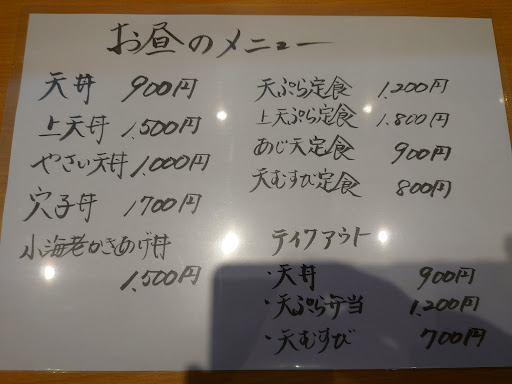 お昼のメニュー
天丼 900円
上天丼 1,500円
やさい天丼 1,000円
穴子丼 1700円
小海老かきあげ丼
1,500円
天ぷら定食 1,200円
上天ぷら定食 1,800円
あじ天定食 900円
天むすび定食 800円
テイクアウト
・天丼 900円
・天ぷら弁当 1,200円
・天むすび 700円